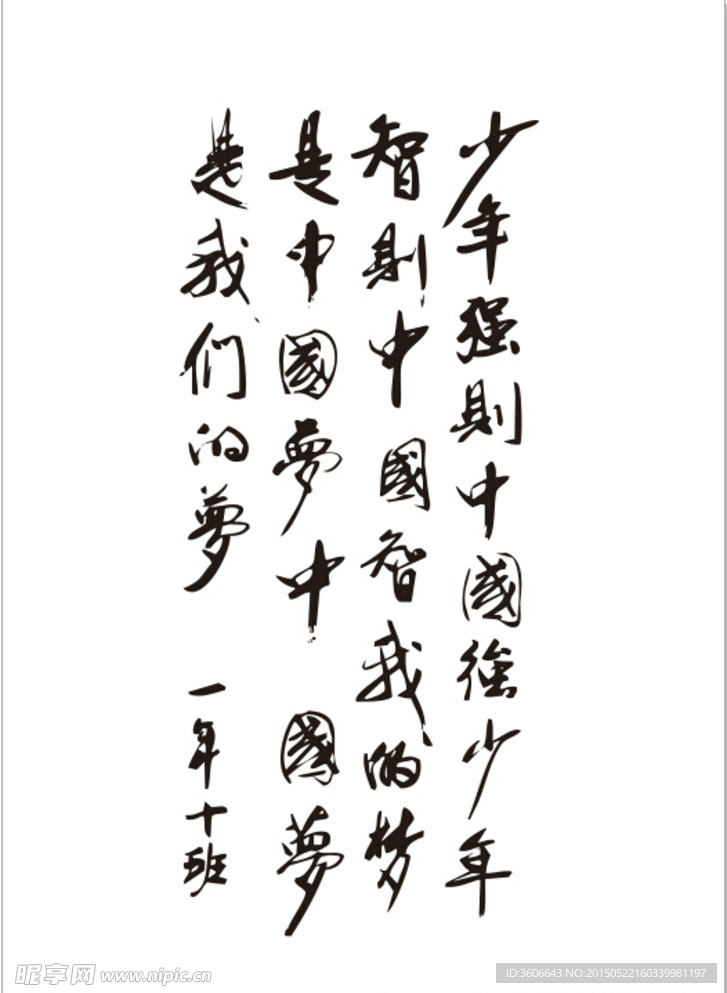 少年强則中國强少年
智則中國智我的梦
是中國夢中國夢
是我们的夢
一年十班
昵享网 www.nipic.cn
ID:3606643 NO:20150522160339981197